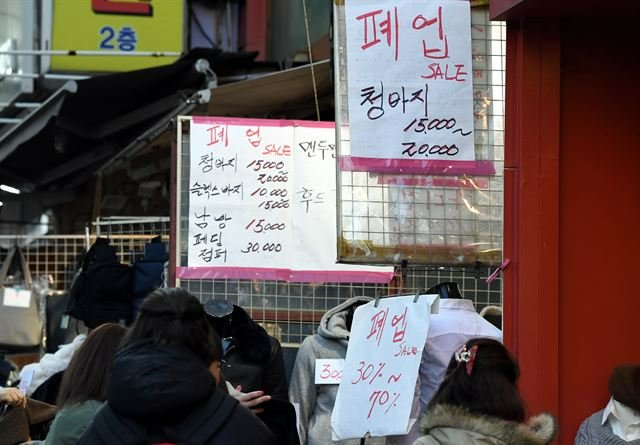 2층
폐업
SALE
청바지
15000~
20000
폐업
SALE
청바지 15000~
20000
슬렉스바지 10000
15000
남방 15000
페딩
점퍼 30,000
맨투맨
후드
폐업
SALE
30%~
70%
300